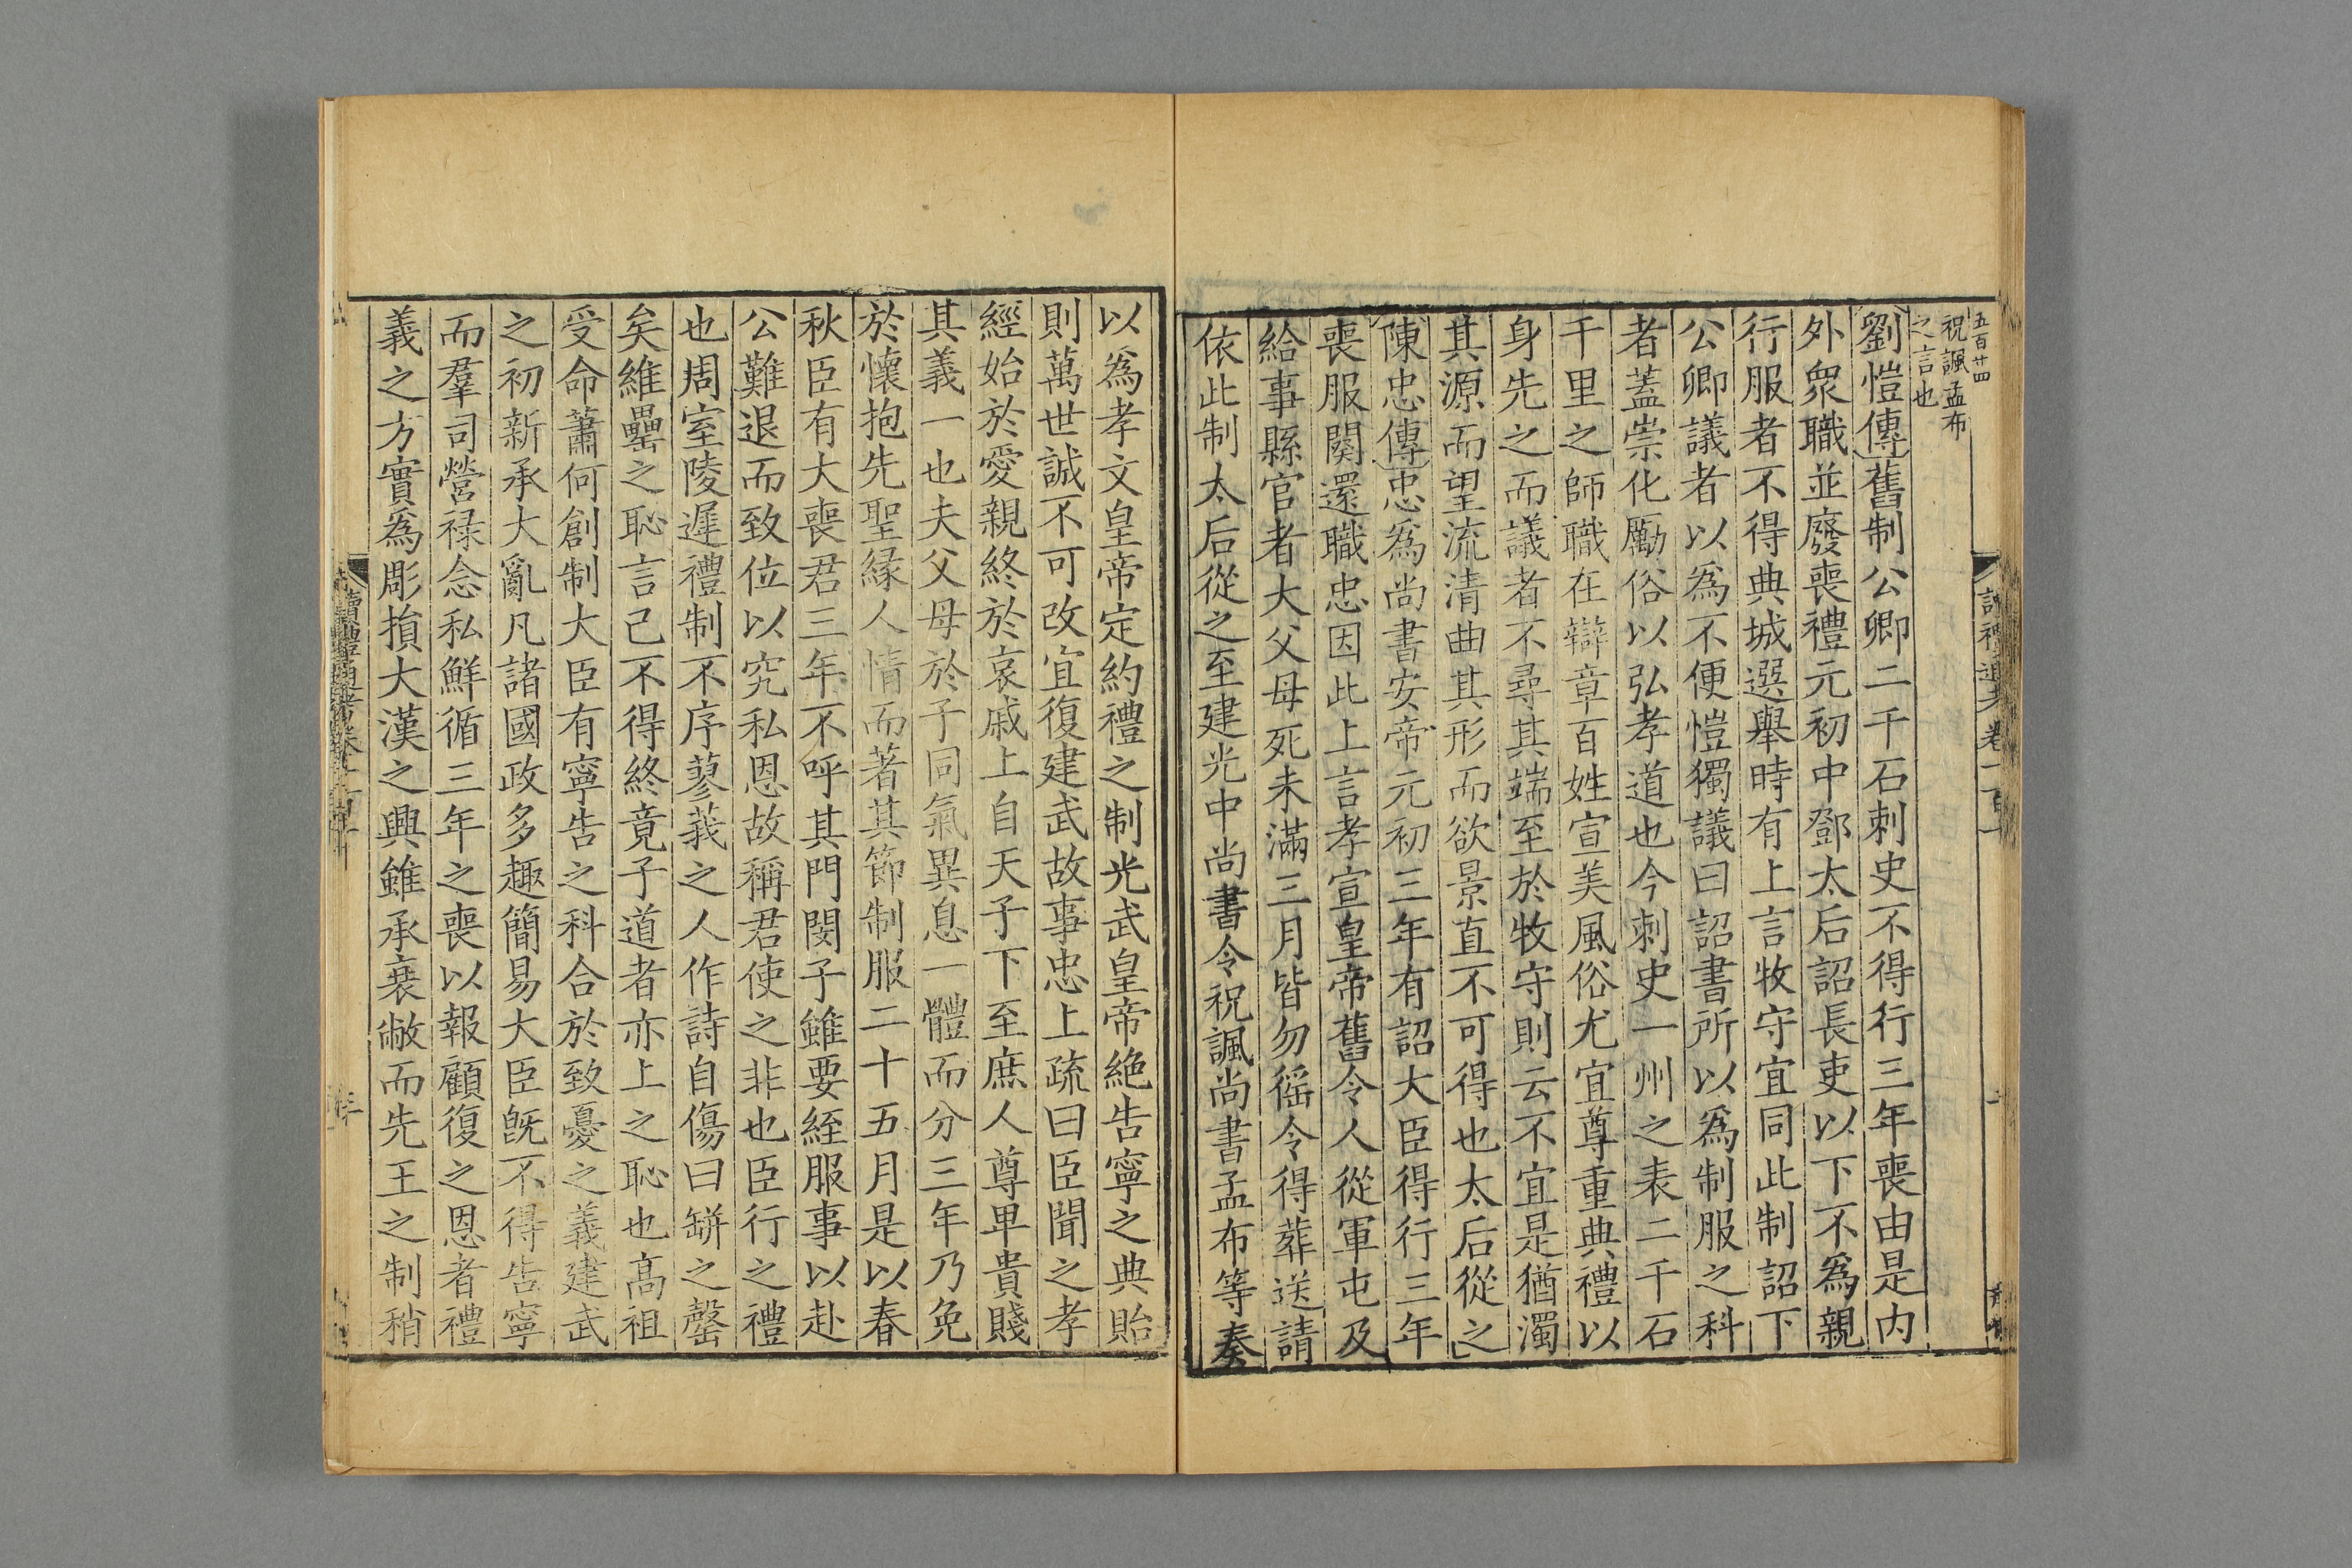 五百廿四
祝諷孟布
之言也
劉愷傳舊制公卿二千石刺史不得行三年喪由是内
外衆職並廢喪禮元初中鄧太后詔長吏以下不爲親
行服者不得典城選舉時有上言牧守宜同此制詔下
公卿議者以爲不便愷獨議曰詔書所以爲制服之科
者蓋崇化厲俗以弘孝道也今刺史一州之表二千石
千里之師職在辯章百姓宣美風俗尤宜尊重典禮以
身先之而議者不尋其端至於牧守則云不宜是猶濁
其源而望流清曲其形而欲景直不可得也太后從之
陳忠傳忠爲尚書安帝元初三年有詔大臣得行三年
喪服闋還職忠因此上言孝宣皇帝舊令人從軍屯及
給事縣官者大父母死未滿三月皆勿徭令得葬送請
依此制太后從之至建光中尚書令祝諷尚書孟布等奏
以爲孝文皇帝定約禮之制光武皇帝絶告寧之典貽
則萬世誠不可改宜復建武故事忠上疏曰臣聞之孝
經始於愛親終於哀戚上自天子下至庶人尊卑貴賤
其義一也夫父母於子同氣異息一體而分三年乃免
於懷抱先聖縁人情而著其節制服二十五月是以春
秋臣有大喪君三年不呼其門閔子雖要絰服事以赴
公難退而致位以究私恩故稱君使之非也臣行之禮
也周室陵遲禮制不序蓼莪之人作詩自傷曰缾之罄
矣維罍之恥言己不得終竟子道者亦上之恥也髙祖
受命蕭何創制大臣有寧告之科合於致憂之義建武
之初新承大亂凡諸國政多趣簡易大臣旣不得告寧
而羣司營禄念私鮮循三年之喪以報顧復之恩者禮
義之方實爲彫損大漢之興雖承衰敝而先王之制稍